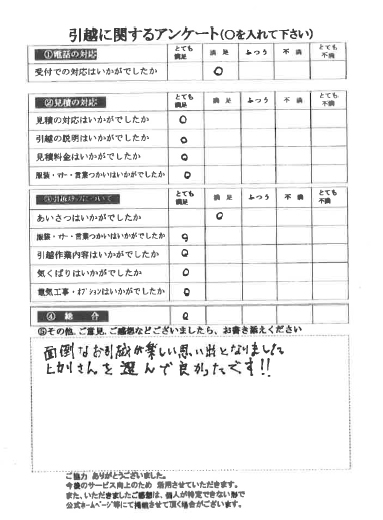 引越に関するアンケート(〇を入れて下さい)
①電話の対応 とても満足 満足 ふつう 不満 とても不満
受付での対応はいかがでしたか ○
②見積の対応 とても満足 満足 ふつう 不満 とても不満
見積の対応はいかがでしたか ○
引越の説明はいかがでしたか ○
見積料金はいかがでしたか ○
服装・マナー・言葉づかいはいかがでしたか ○
③引越スタッフについて とても満足 満足 ふつう 不満 とても不満
あいさつはいかがでしたか ○
服装・マナー・言葉づかいはいかがでしたか ○
引越作業内容はいかがでしたか ○
気くばりはいかがでしたか ○
電気工事・オプションはいかがでしたか ○
④ 総 合 ○
⑤その他、ご意見、ご感想などございましたら、お書き添えください
面倒なお引越が楽しい思い出となりました
さんを選んで良かったです!!
ご協力 ありがとうございました。
今後のサービス向上のため 活用させていただきます。
また、いただきましたご感想は、個人が特定できない形で
公式ホームページ等にて掲載させて頂く場合がございます。